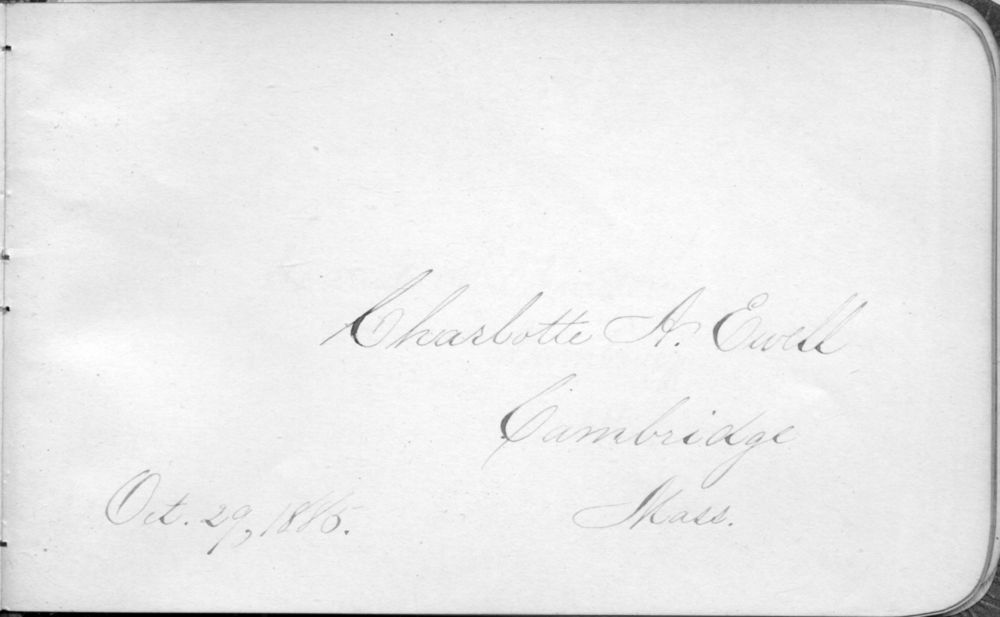 Charlotte A. Ewell
Cambridge
Mass.
Oct. 29, 1885.